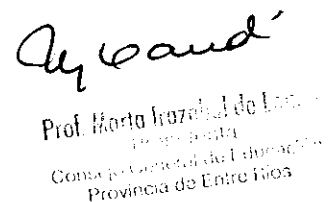 Prof. Marta Irazabal de L
Presidenta
Consejo General de Educación
Provincia de Entre Ríos